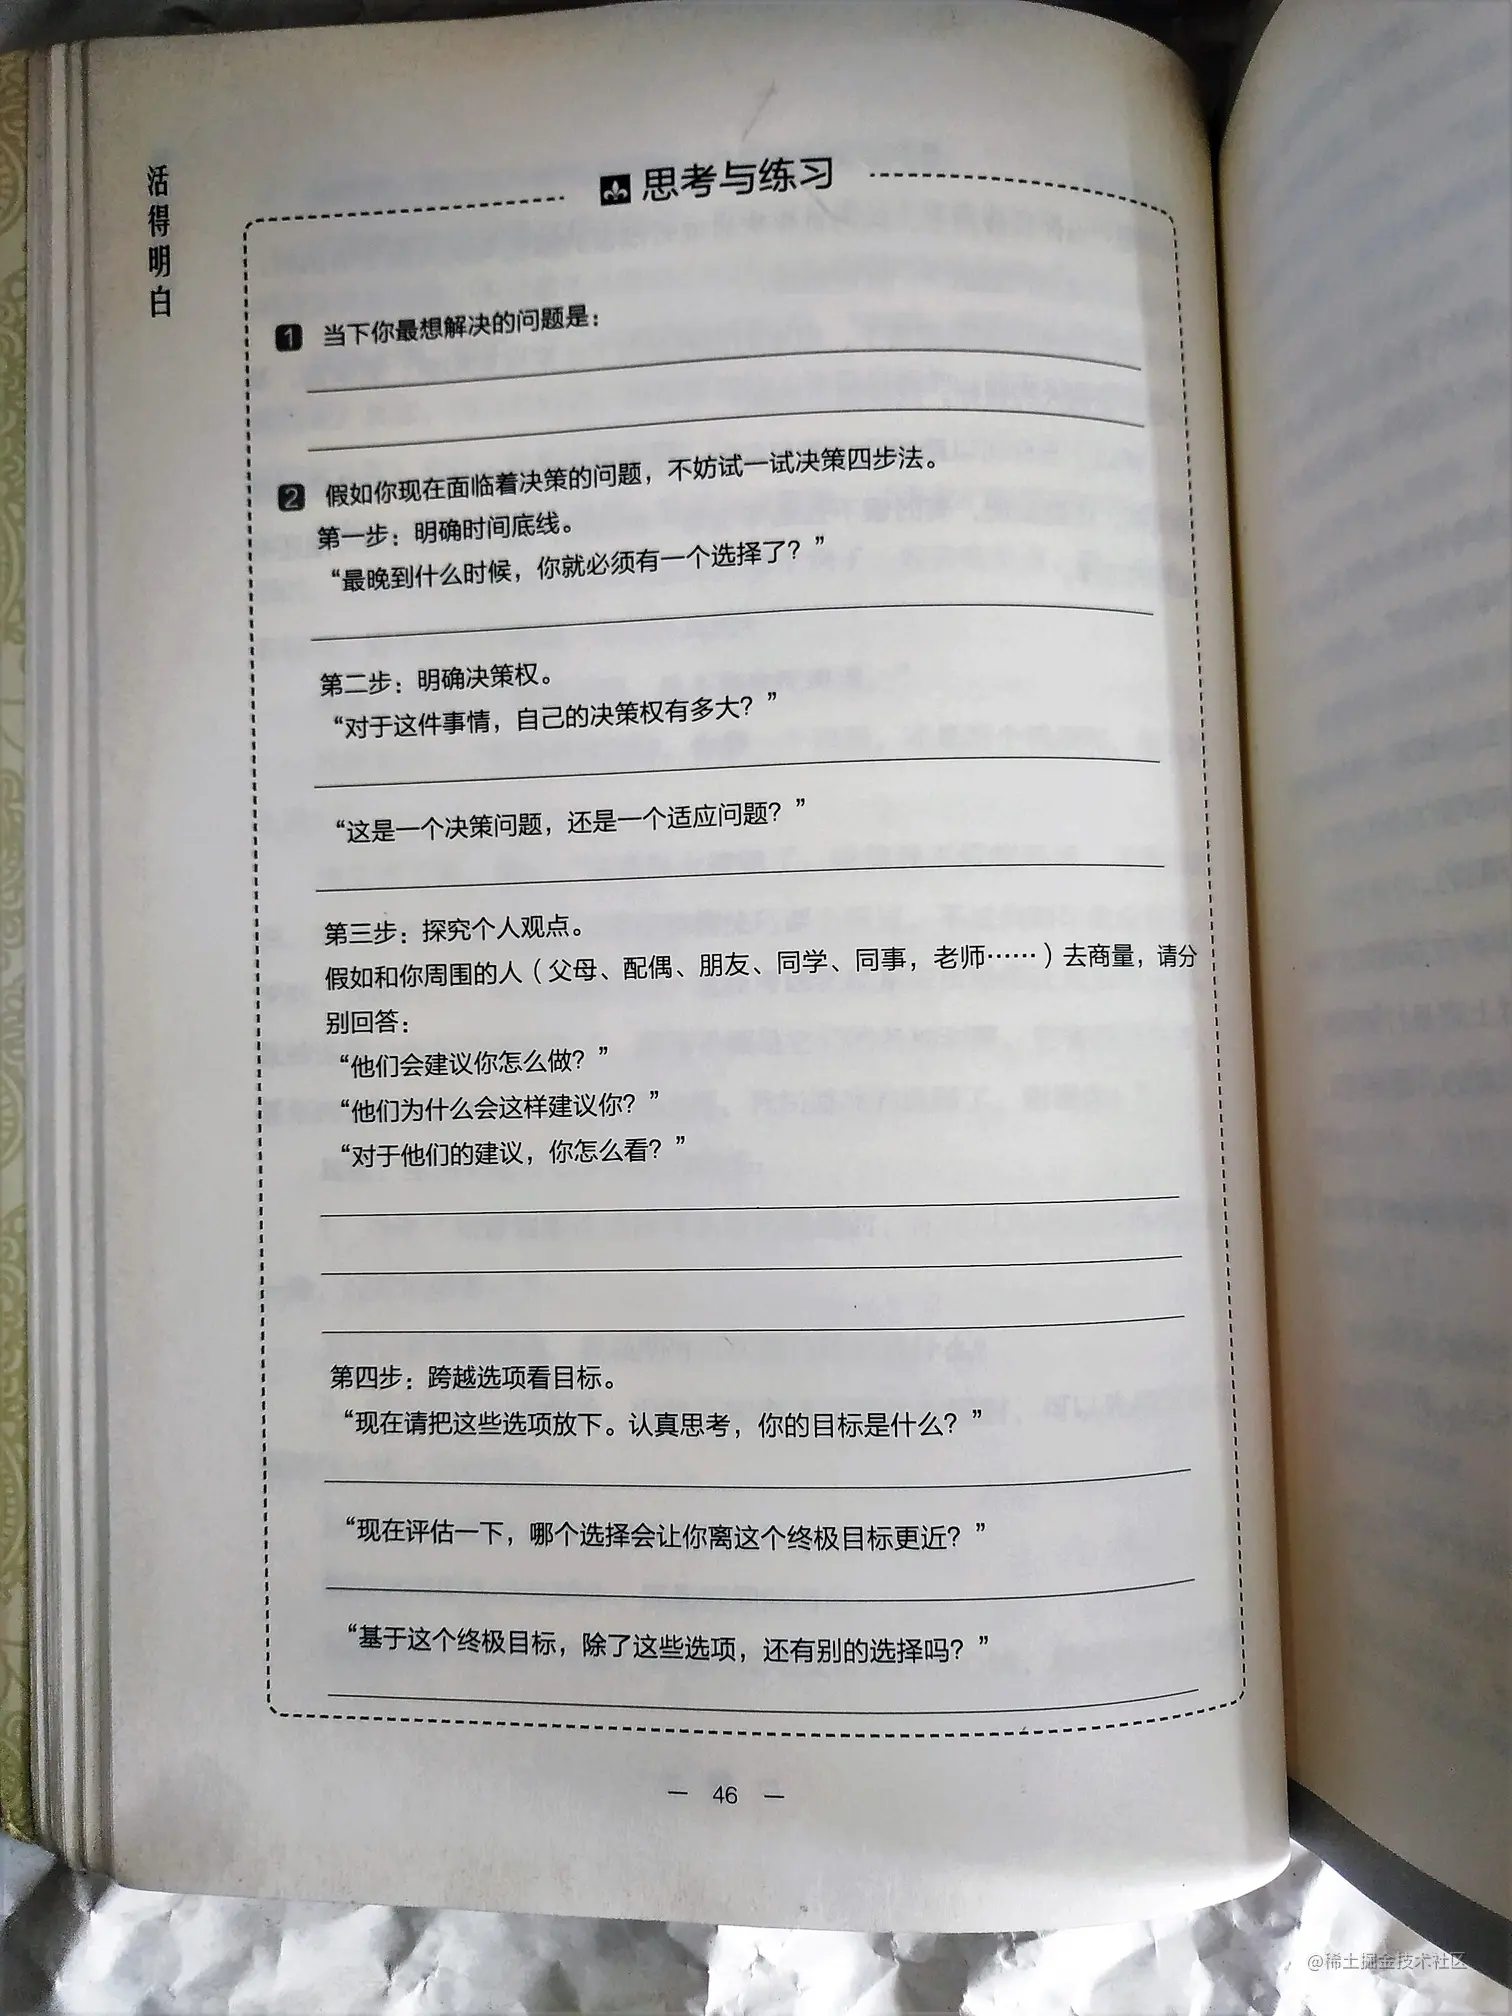 活得明白
思考与练习
1 当下你最想解决的问题是：
2 假如你现在面临着决策的问题，不妨试一试决策四步法。
第一步：明确时间底线。
“最晚到什么时候，你就必须有一个选择了？”
第二步：明确决策权。
“对于这件事情，自己的决策权有多大？”
“这是一个决策问题，还是一个适应问题？”
第三步：探究个人观点。
假如和你周围的人（父母、配偶、朋友、同学、同事，老师……）去商量，请分
别回答：
“他们会建议你怎么做？”
“他们为什么会这样建议你？”
“对于他们的建议，你怎么看？”
第四步：跨越选项看目标。
“现在请把这些选项放下。认真思考，你的目标是什么？”
“现在评估一下，哪个选择会让你离这个终极目标更近？”
“基于这个终极目标，除了这些选项，还有别的选择吗？”
— 46 —
@稀土掘金技术社区